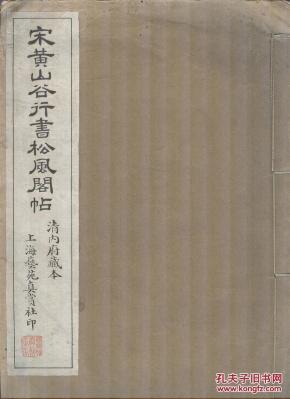 宋黃山谷行書松風閣帖
清內府藏本
上海藝苑真賞社印
孔夫子旧书网